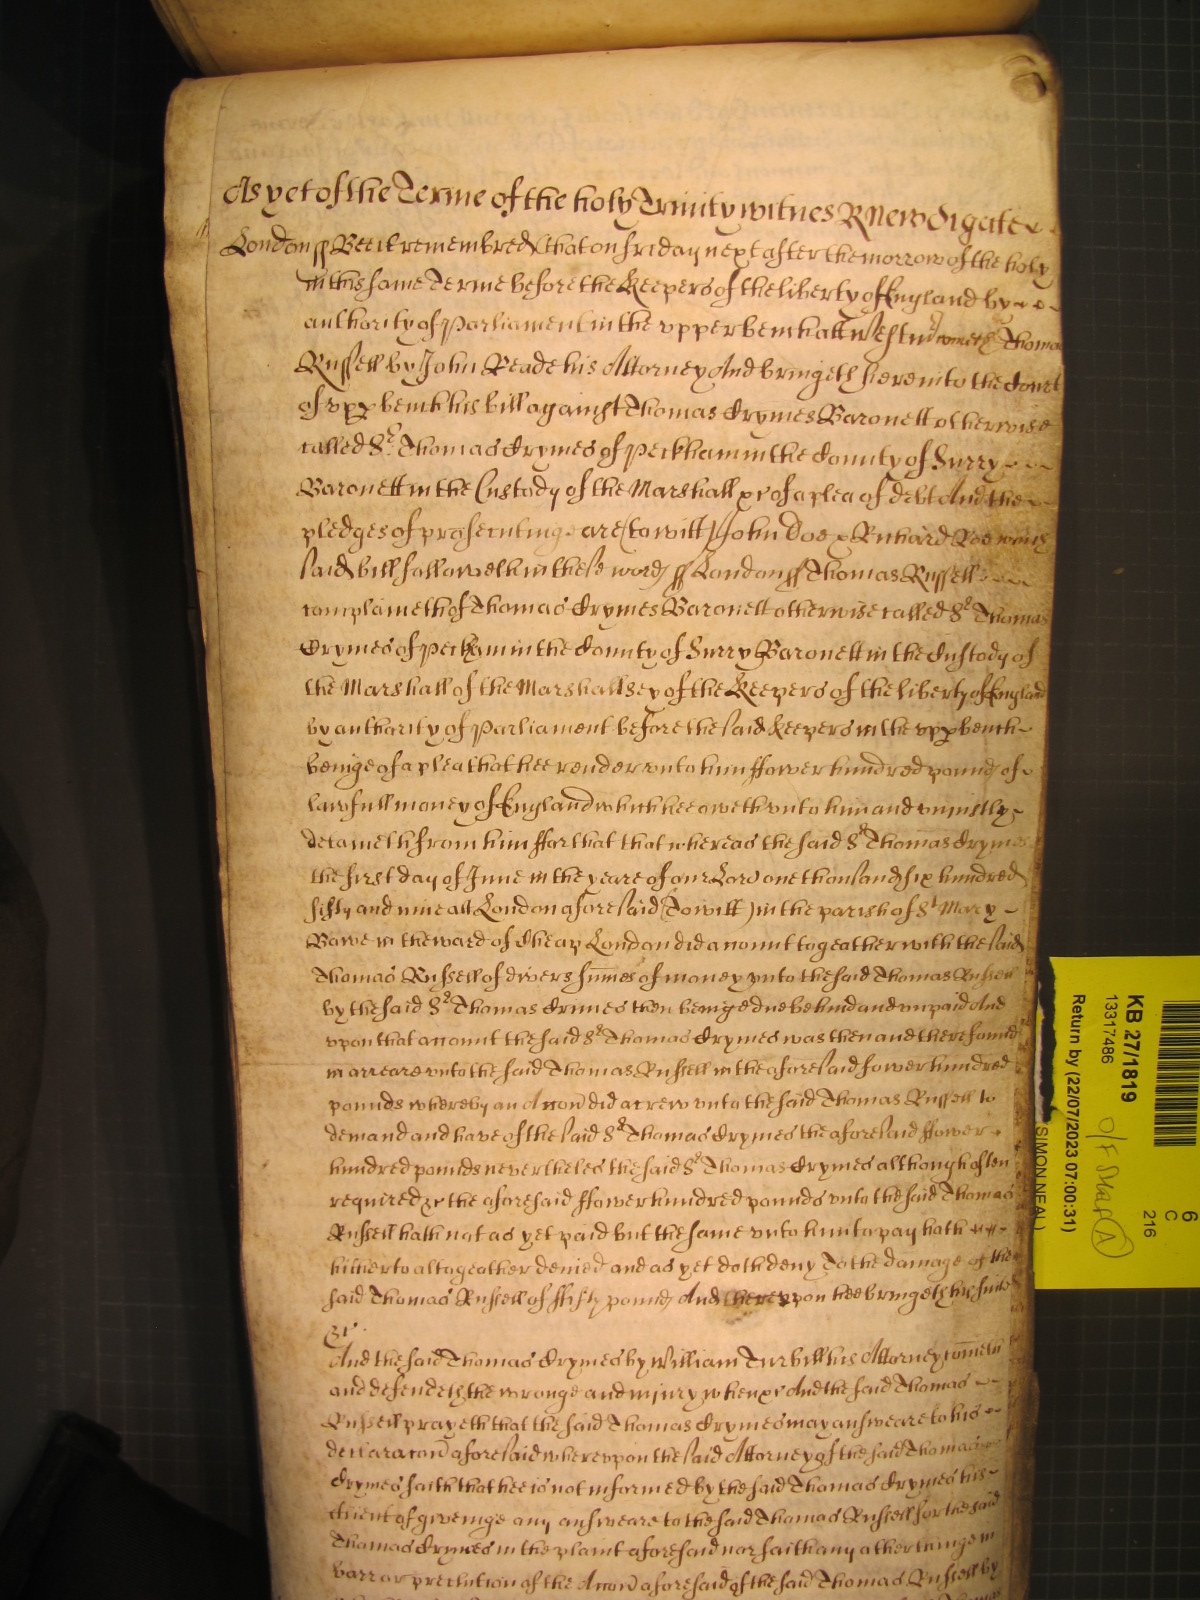 As yet of the Terme of the holy Trinity witnes R Newdigate
London ss Bee it remembred that on friday next after the morrow of the holy
in this same Terme before the Keepers of the liberty of England by
authority of Parliament in the upper bench att Westmr cometh Thomas
Russell by John Reade his Attorney And bringeth here into the Court
of upp bench his bill against Thomas Crymes Baronett otherwise
called Sr Thomas Crymes of Peckham in the County of Surry
Baronett in the Custody of the Marshall &c of a plea of debt And the
pledges of prosecutinge are (to witt) John Doe & Richard Roe which
said bill followeth in these words ss London ss Thomas Russell
complaineth of Thomas Crymes Baronett otherwise called Sr Thomas
Crymes of Peckham in the County of Surry Baronett in the Custody of
the Marshall of the Marshallsey of the Keepers of the liberty of England
by authority of Parliament before the said Keepers in the upp bench
beinge of a plea that hee render unto him ffower hundred pounds of
lawfull money of England which hee oweth unto him and uniustly
detaineth from him ffor that that whereas the said Sr Thomas Crymes
the first day of June in the yeare of our Lord one thousand six hundred
fifty and nine att London aforesaid (To witt) in the parish of St Mary
Bawe in the ward of Cheap London did account togeather with the said
Thomas Russell of divers summes of money unto the said Thomas Russell
by the said Sr Thomas Crimes then beinge due behind and unpaid And
upon that account the said Sr Thomas Crymes was then and there found
in arreare unto the said Thomas Russell in the aforesaid fower hundred
pounds whereby an Accon did accrew unto the said Thomas Russell to
demand and have of the said Sr Thomas Crymes the aforesaid ffower
hundred pounds neverthelес the said Sr Thomas Crymes although often
required &c the aforesaid ffower hundred pounds unto the said Thomas
Russell hath not as yet paid but the same unto him to pay hath
hitherto altogeather denied and as yet doth deny To the damage of the
said Thomas Russell of ffifty pounds And thereupon hee bringeth his suite
&c
And the said Thomas Crymes by William Turbill his Attorney cometh
and defendeth the wronge and iniury when &c And the said Thomas
Russell prayeth that the said Thomas Crymes may answeare to his
declaracon aforesaid whereupon the said Attorney of the said Thomas
Crymes saith that hee is not informed by the said Thomas Crymes his
client of giveinge any answeare to the said Thomas Russell for the said
Thomas Crymes in the plaint aforesaid nor saith any other thinge in
barr or preclution of the Accon aforesaid of the said Thomas Russell by
KB 27/1819
13317486
Return by (22/07/2023 07:00:31)
SIMON NEAL
6
C
216
A